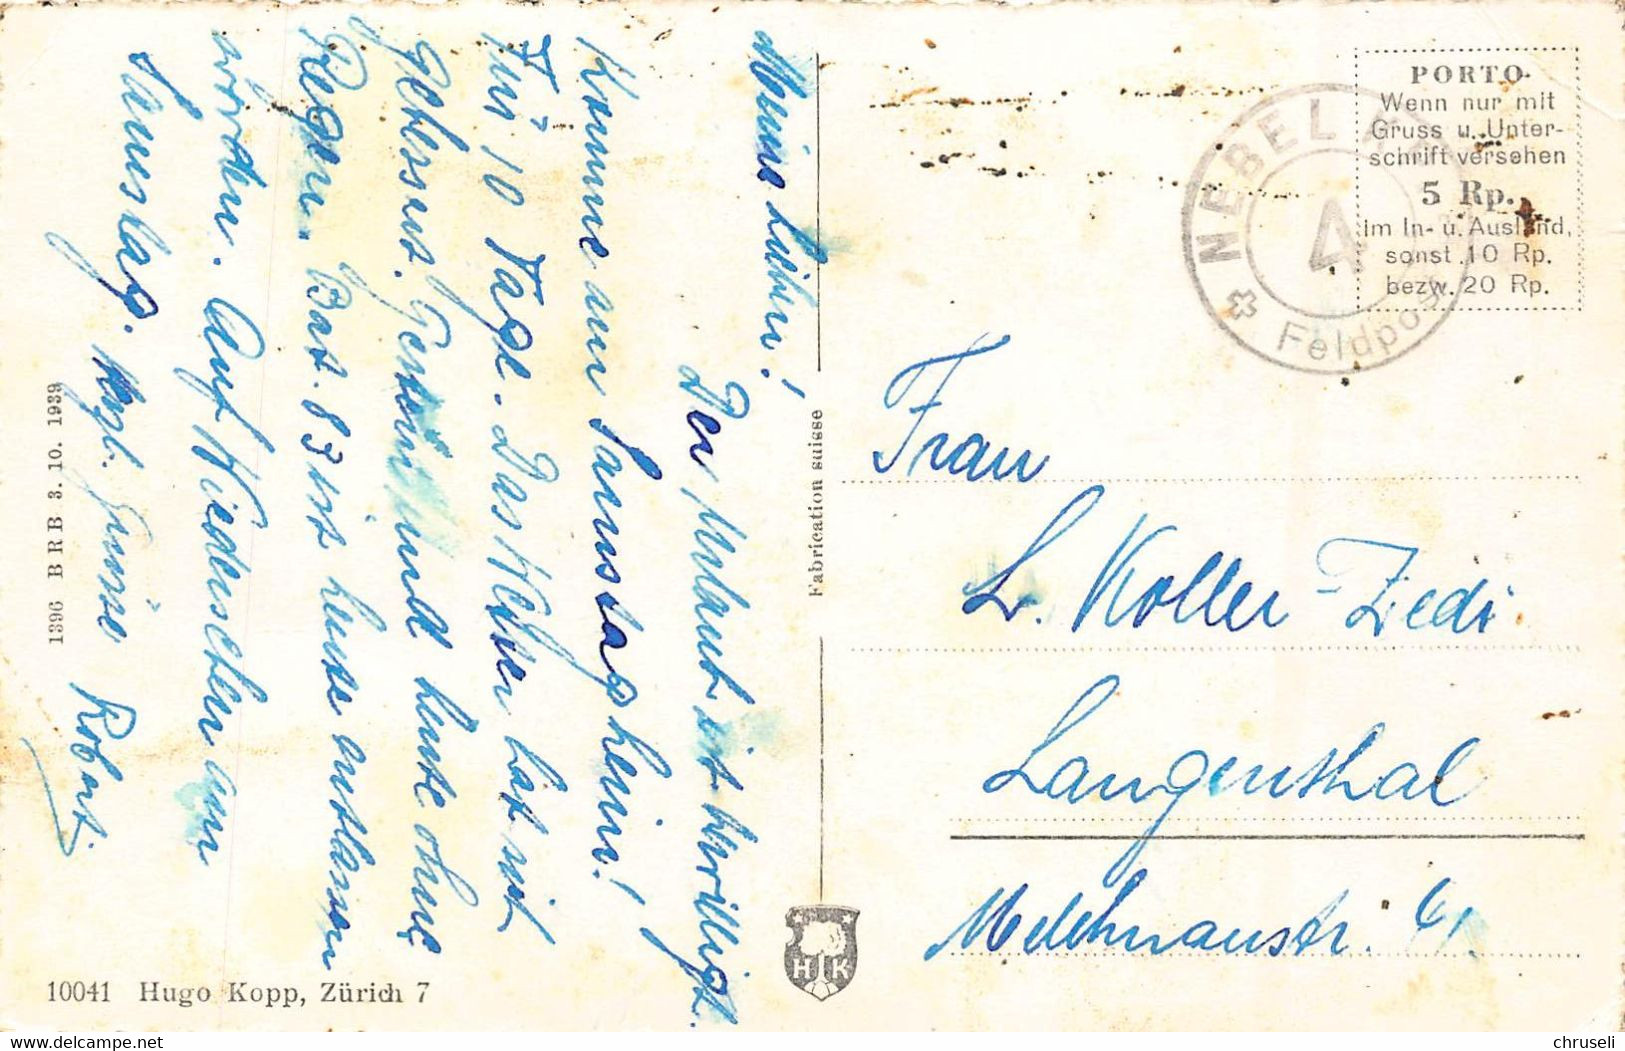 Meine Lieben!
Der Urlaub ist bewilligt.
Komme am Samstag heim!
Für 10 Tage. Das Wetter hat mit
gebessert. Gestern und heute ohne
Regen. Bat. 83 ist heute entlassen
worden. Auf Wiedersehen am
Samstag. Hrzl. Grüsse Robert.
1396 B R B 3. 10. 1939
10041 Hugo Kopp, Zürich 7
Fabrication suisse
H K
NEBEL
4
Feldpost
PORTO
Wenn nur mit
Gruss u. Unter-
schrift versehen
5 Rp.
im In- u. Ausland,
sonst 10 Rp.
bezw. 20 Rp.
Frau
L. Koller-Zedi
Langenthal
Melchnaustr. 61
Own work
chruseli